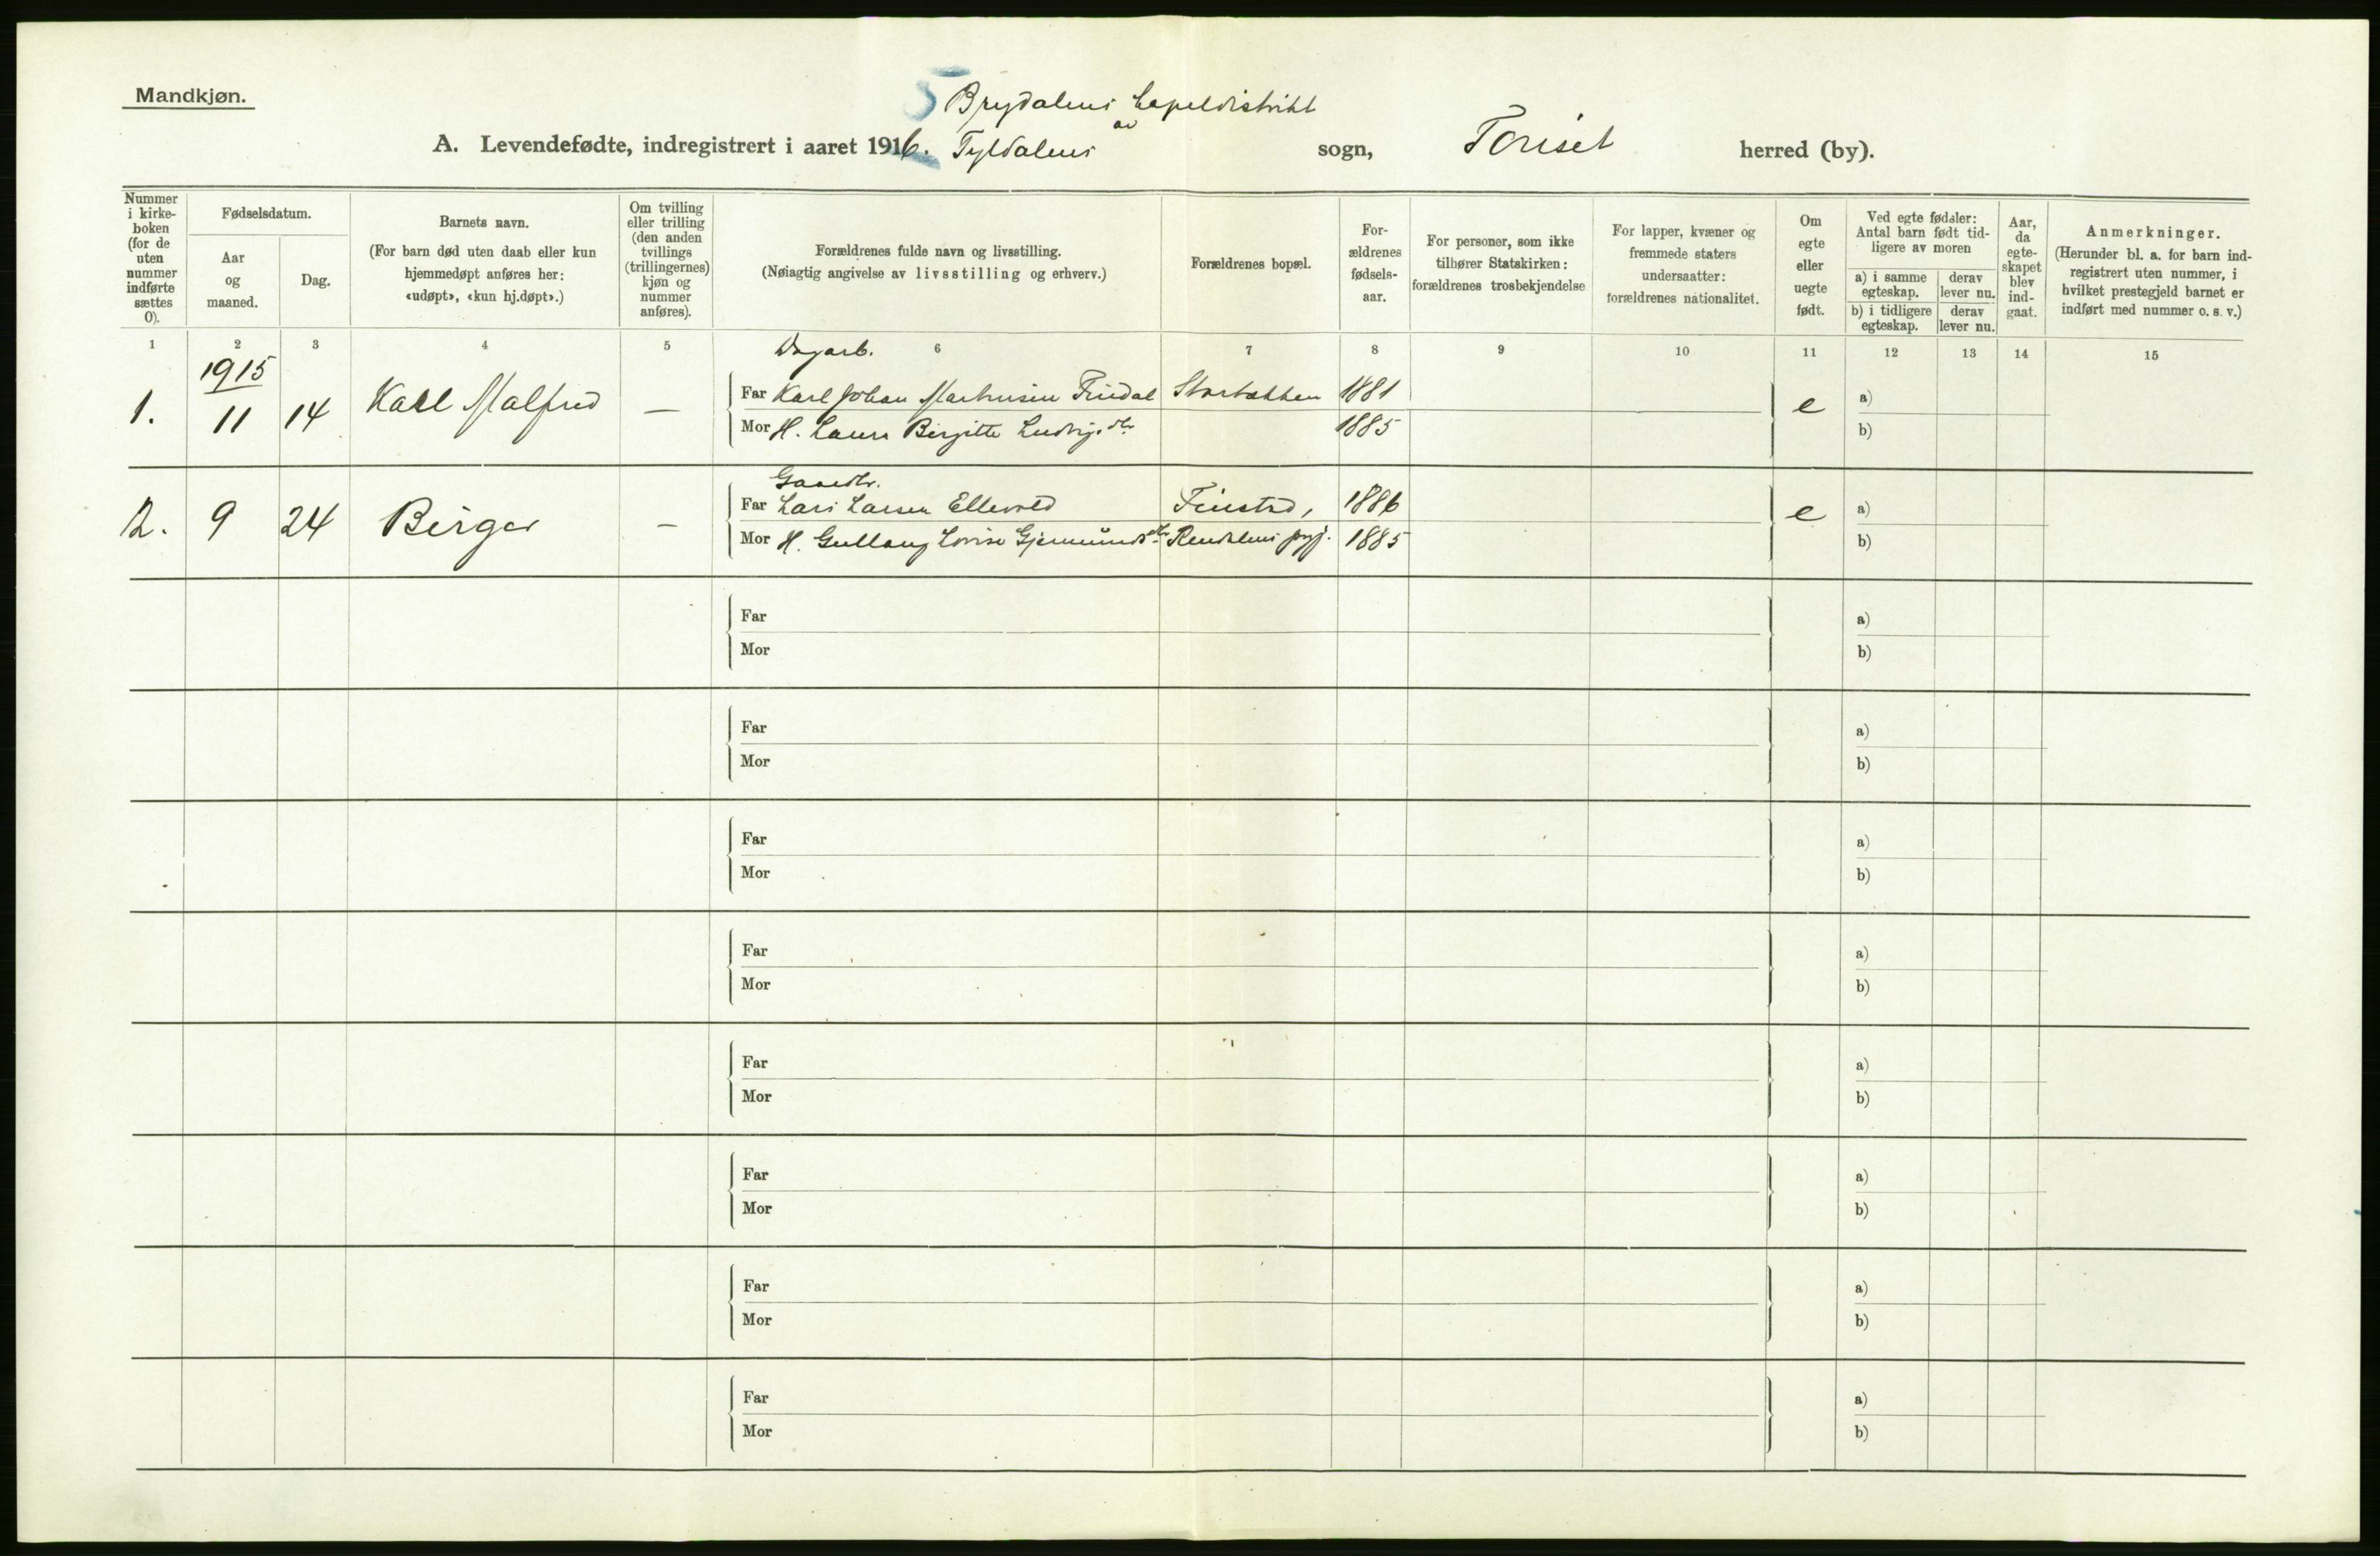 Mandkjøn.
5 Brydalens kapeldistrikt
av
A. Levendefødte, indregistrert i aaret 1916. Tyldalens sogn, Tønset herred (by).
Nummer i kirke-boken (for de uten nummer indførte sættes 0).
Fødselsdatum.
Aar og maaned.
Dag.
Barnets navn.
(For barn død uten daab eller kun hjemmedøpt anføres her: «udøpt», «kun hj.døpt».)
Om tvilling eller trilling (den anden tvillings (trillingernes) kjøn og nummer anføres).
Forældrenes fulde navn og livsstilling.
(Nøiagtig angivelse av livsstilling og erhverv.)
Forældrenes bopæl.
For-ældrenes fødsels-aar.
For personer, som ikke tilhører Statskirken: forældrenes trosbekjendelse
For lapper, kvæner og fremmede staters undersaatter: forældrenes nationalitet.
Om egte eller uegte født.
Ved egte fødsler: Antal barn født tid-ligere av moren
a) i samme egteskap.
derav lever nu.
b) i tidligere egteskap.
derav lever nu.
Aar, da egte-skapet blev ind-gaat.
Anmerkninger.
(Herunder bl. a. for barn ind-registrert uten nummer, i hvilket prestegjeld barnet er indført med nummer o. s. v.)
1 2 3 4 5 6 7 8 9 10 11 12 13 14 15
1915
Dagarb.
1. 11 14 Karl Malfred — Far Karl Johan Marthinsen Findal Storbakken 1881 e a)
Mor H. Laura Birgitte Ludvigsdtr 1885 b)
Gaardbr.
2. 9 24 Birger — Far Lars Larsen Ellevold Finstad, 1886 e a)
Mor H. Gullaug Lovise Gjermundsdtr Rendalens pgj. 1885 b)
Far a)
Mor b)
Far a)
Mor b)
Far a)
Mor b)
Far a)
Mor b)
Far a)
Mor b)
Far a)
Mor b)
Far a)
Mor b)
Far a)
Mor b)